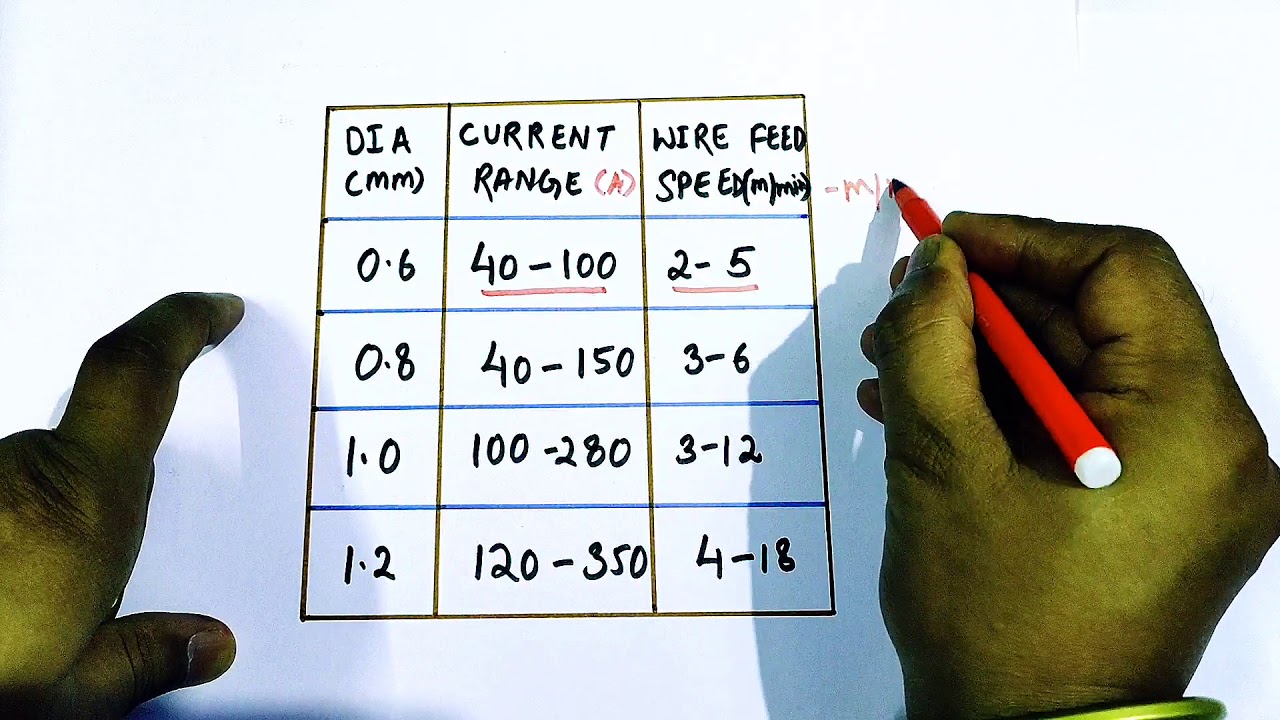 DIA
(mm)
CURRENT
RANGE (A)
WIRE FEED
SPEED(m/min) -m/
0.6 40-100 2-5
0.8 40-150 3-6
1.0 100-280 3-12
1.2 120-350 4-18